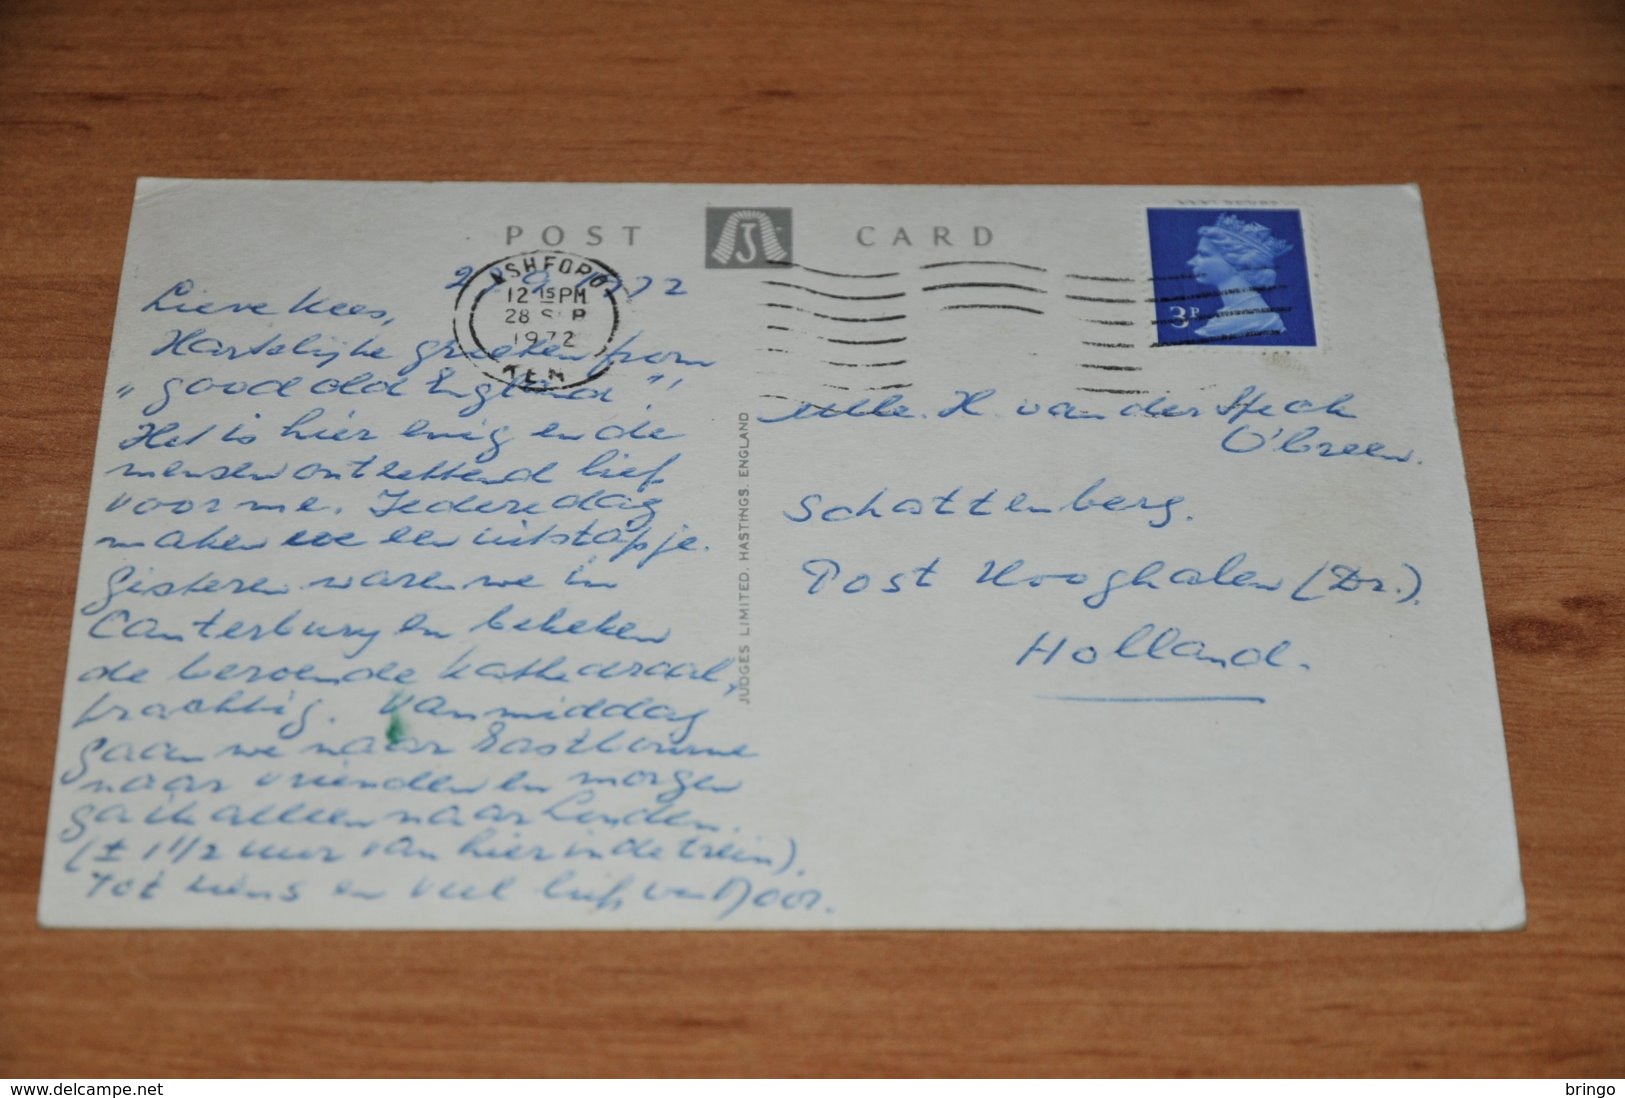 POST CARD
ASHFORD
12 15 PM
28 SEP
1972
KENT
3P
JUDGES LIMITED, HASTINGS, ENGLAND
9 1972
Lieve Kees,
Hartelijke groeten from
"good old England"!
Het is hier enig en de
mensen ontzettend lief
voor me. Iedere dag
maken we een uitstapje.
Gisteren waren we in
Canterbury en bekeken
de beroemde kathedraal,
prachtig. Vanmiddag
gaan we naar Eastbourne
naar vrienden en morgen
ga ik alleen naar Londen.
(± 1 1/2 uur van hier in de trein).
Tot ziens en veel liefs van Noor.
H. van der
O'breen.
Schattenberg.
Post Hooghalen (Dr.).
Holland.
www.delcampe.net
bringo